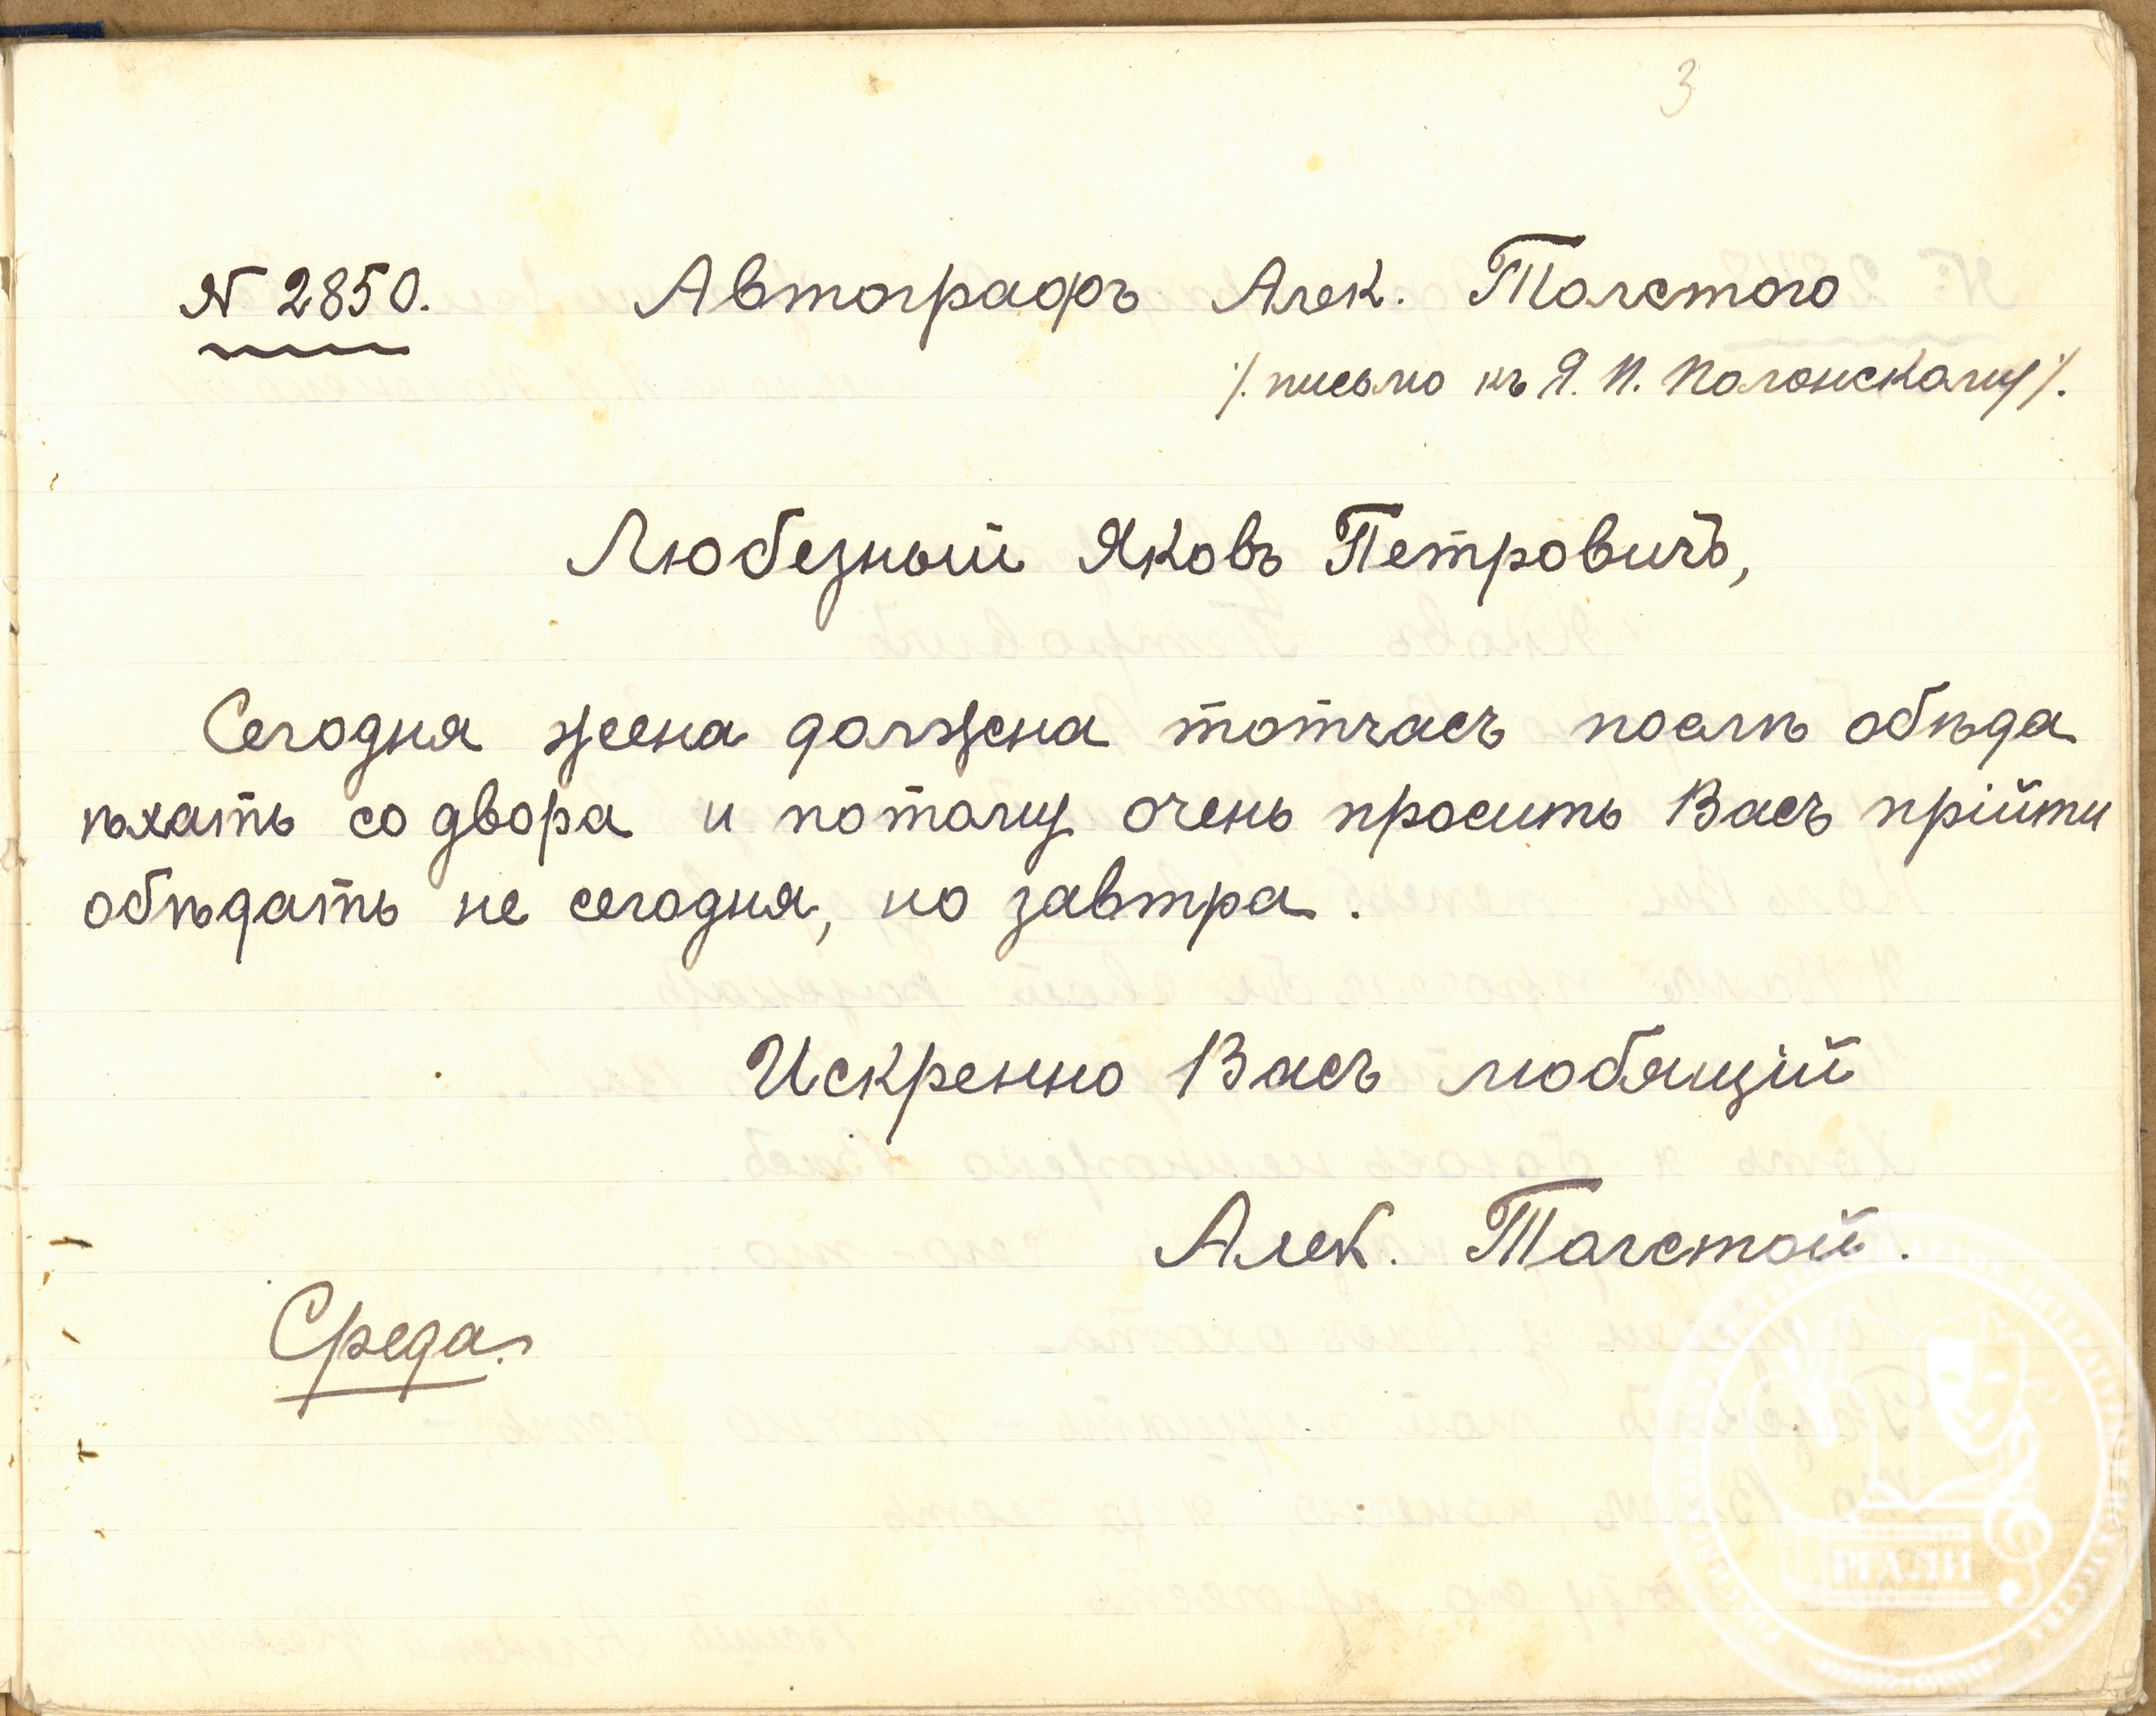 3
№ 2850. Автографъ Алек. Толстого
/. письмо къ Я. П. Полонскому /.
Любезный Яковъ Петровичъ,
Сегодня жена должна тотчасъ послѣ обѣда
ѣхать со двора и потому очень проситъ Васъ прійти
обѣдать не сегодня, но завтра.
Искренно Васъ любящій
Алек. Толстой.
Среда.
РГАЛИ